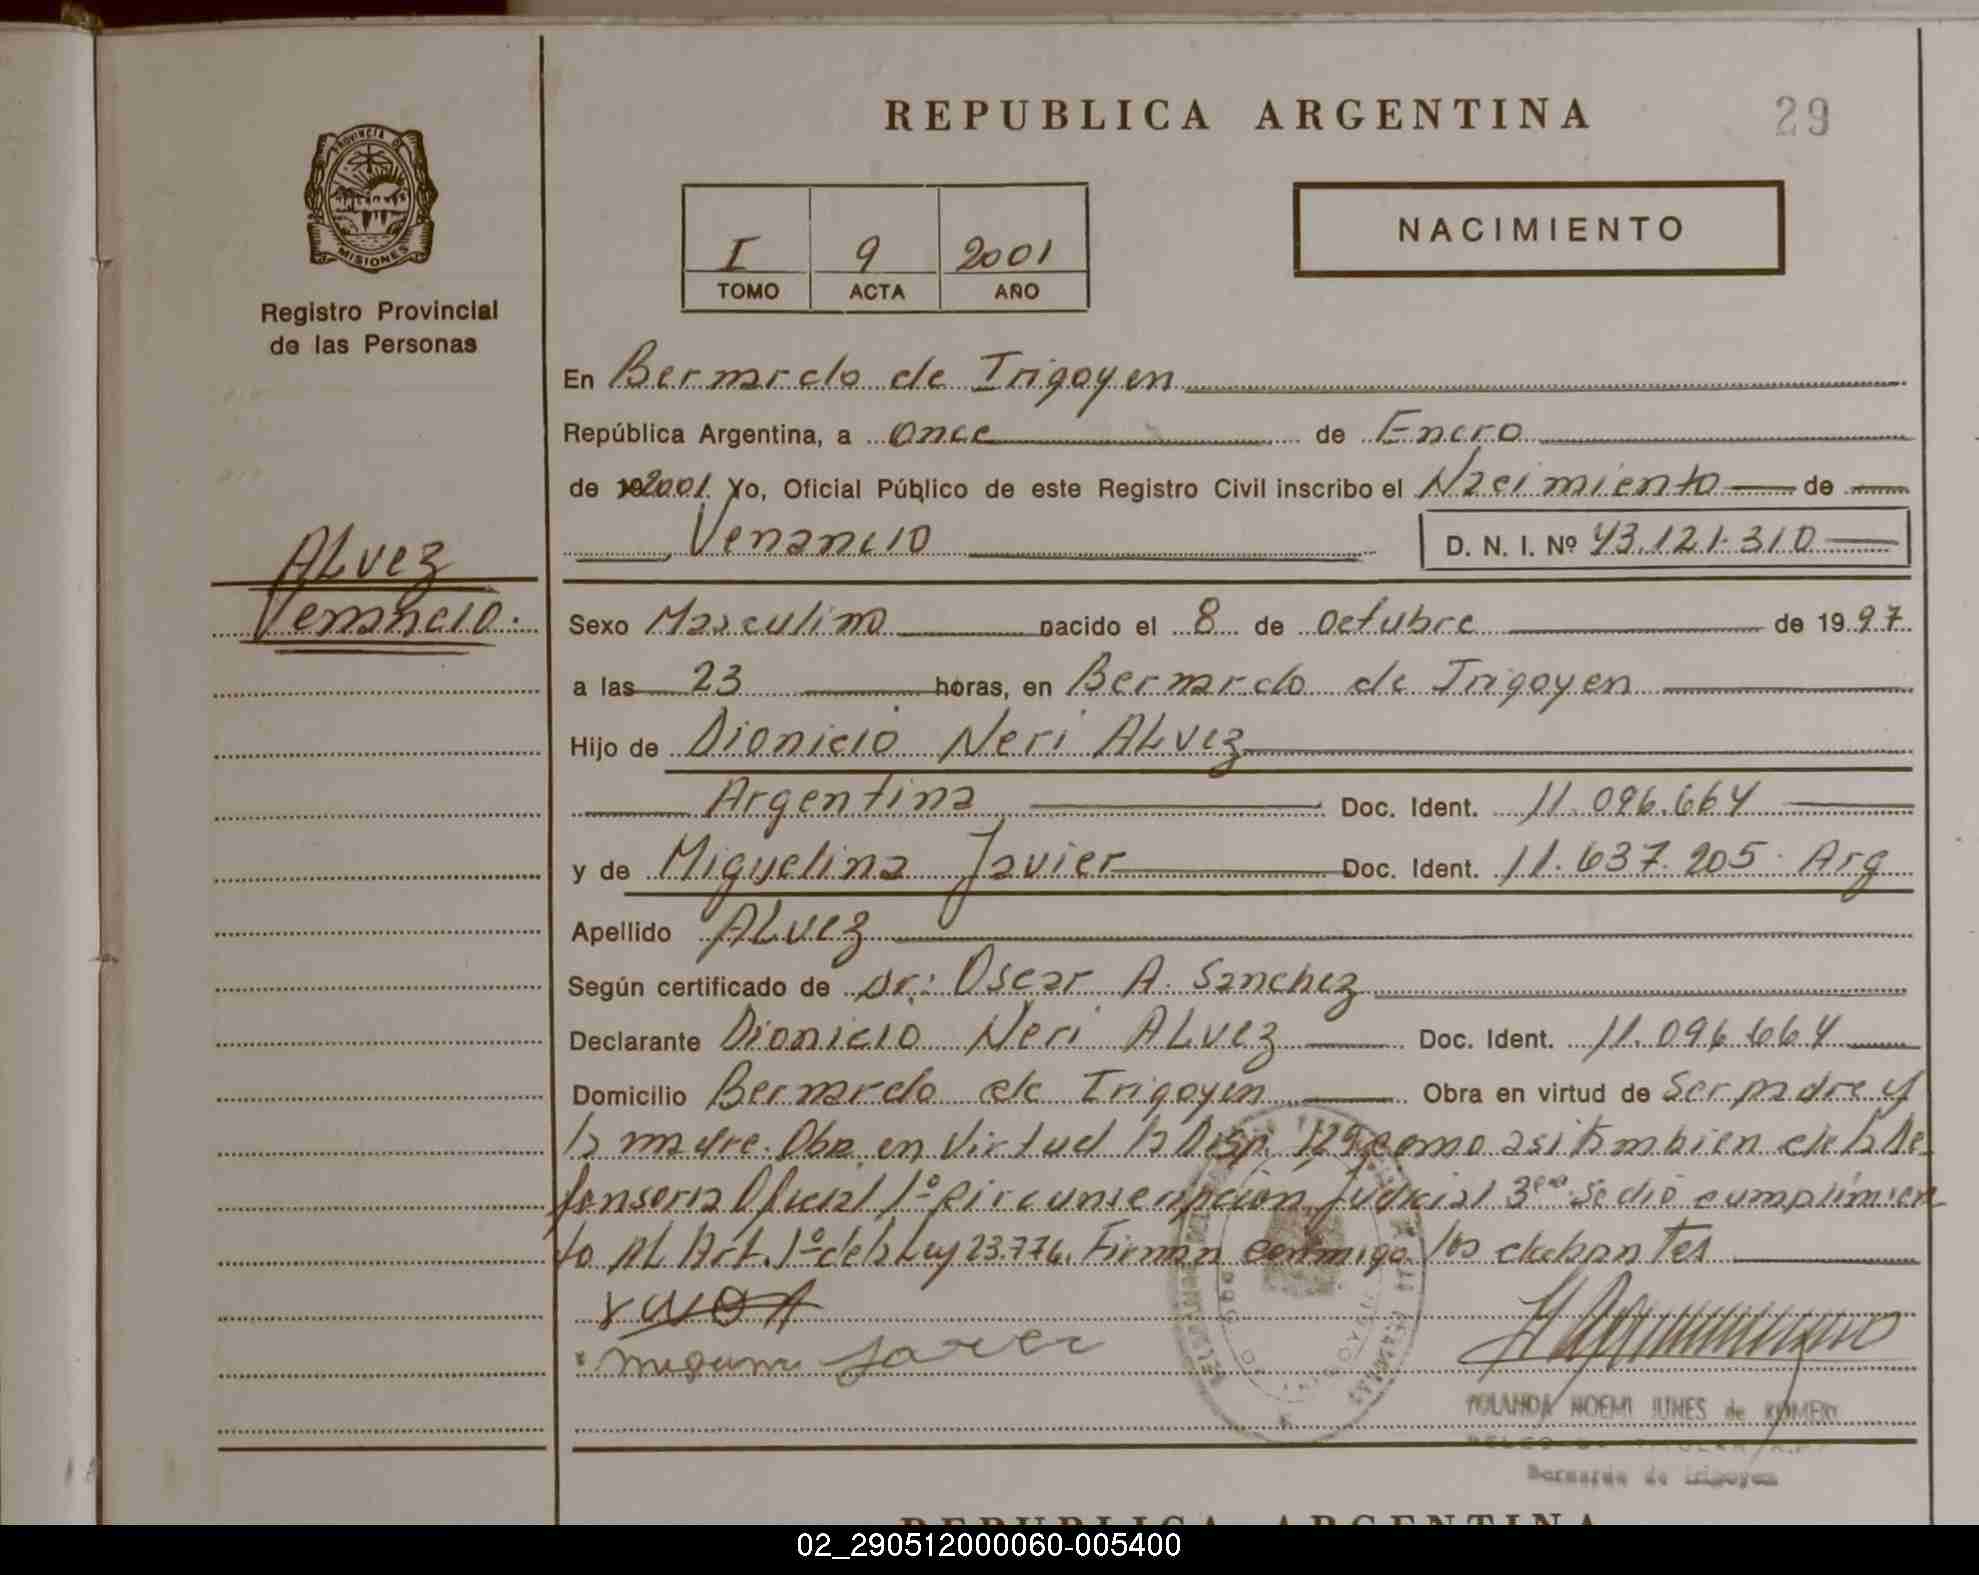 REPUBLICA ARGENTINA
29
PROVINCIA DE
MISIONES
Registro Provincial
de las Personas
I 9 2001
TOMO ACTA AÑO
NACIMIENTO
En Bernardo de Irigoyen
República Argentina, a once de Enero
de 2001 Yo, Oficial Público de este Registro Civil inscribo el Nacimiento de
Venancio
D. N. I. Nº 43.121.310
ALvez
Venancio.
Sexo Masculino nacido el 8 de octubre de 1997
a las 23 horas, en Bernardo de Irigoyen
Hijo de Dionicio Neri ALvez
Argentina Doc. Ident. 11.096.664
y de Miguelina Javier Doc. Ident. 11.637.205 Arg
Apellido ALvez
Según certificado de Dr: Oscar A. Sanchez
Declarante Dionicio Neri ALvez Doc. Ident. 11.096.664
Domicilio Bernardo de Irigoyen Obra en virtud de Ser padre y
la madre. Obra en virtud la Disp. 129 como asi tambien de la De
fensoria Oficial 1º Circunscripcion Judicial 3era Se dió cumplimien
to AL Art. 1º de la Ley 23.776. Firman conmigo los
Javier
YOLANDA NOEMI JUNES de ROMERO
Bernardo de Irigoyen
REPUBLICA ARGENTINA
02_290512000060-005400